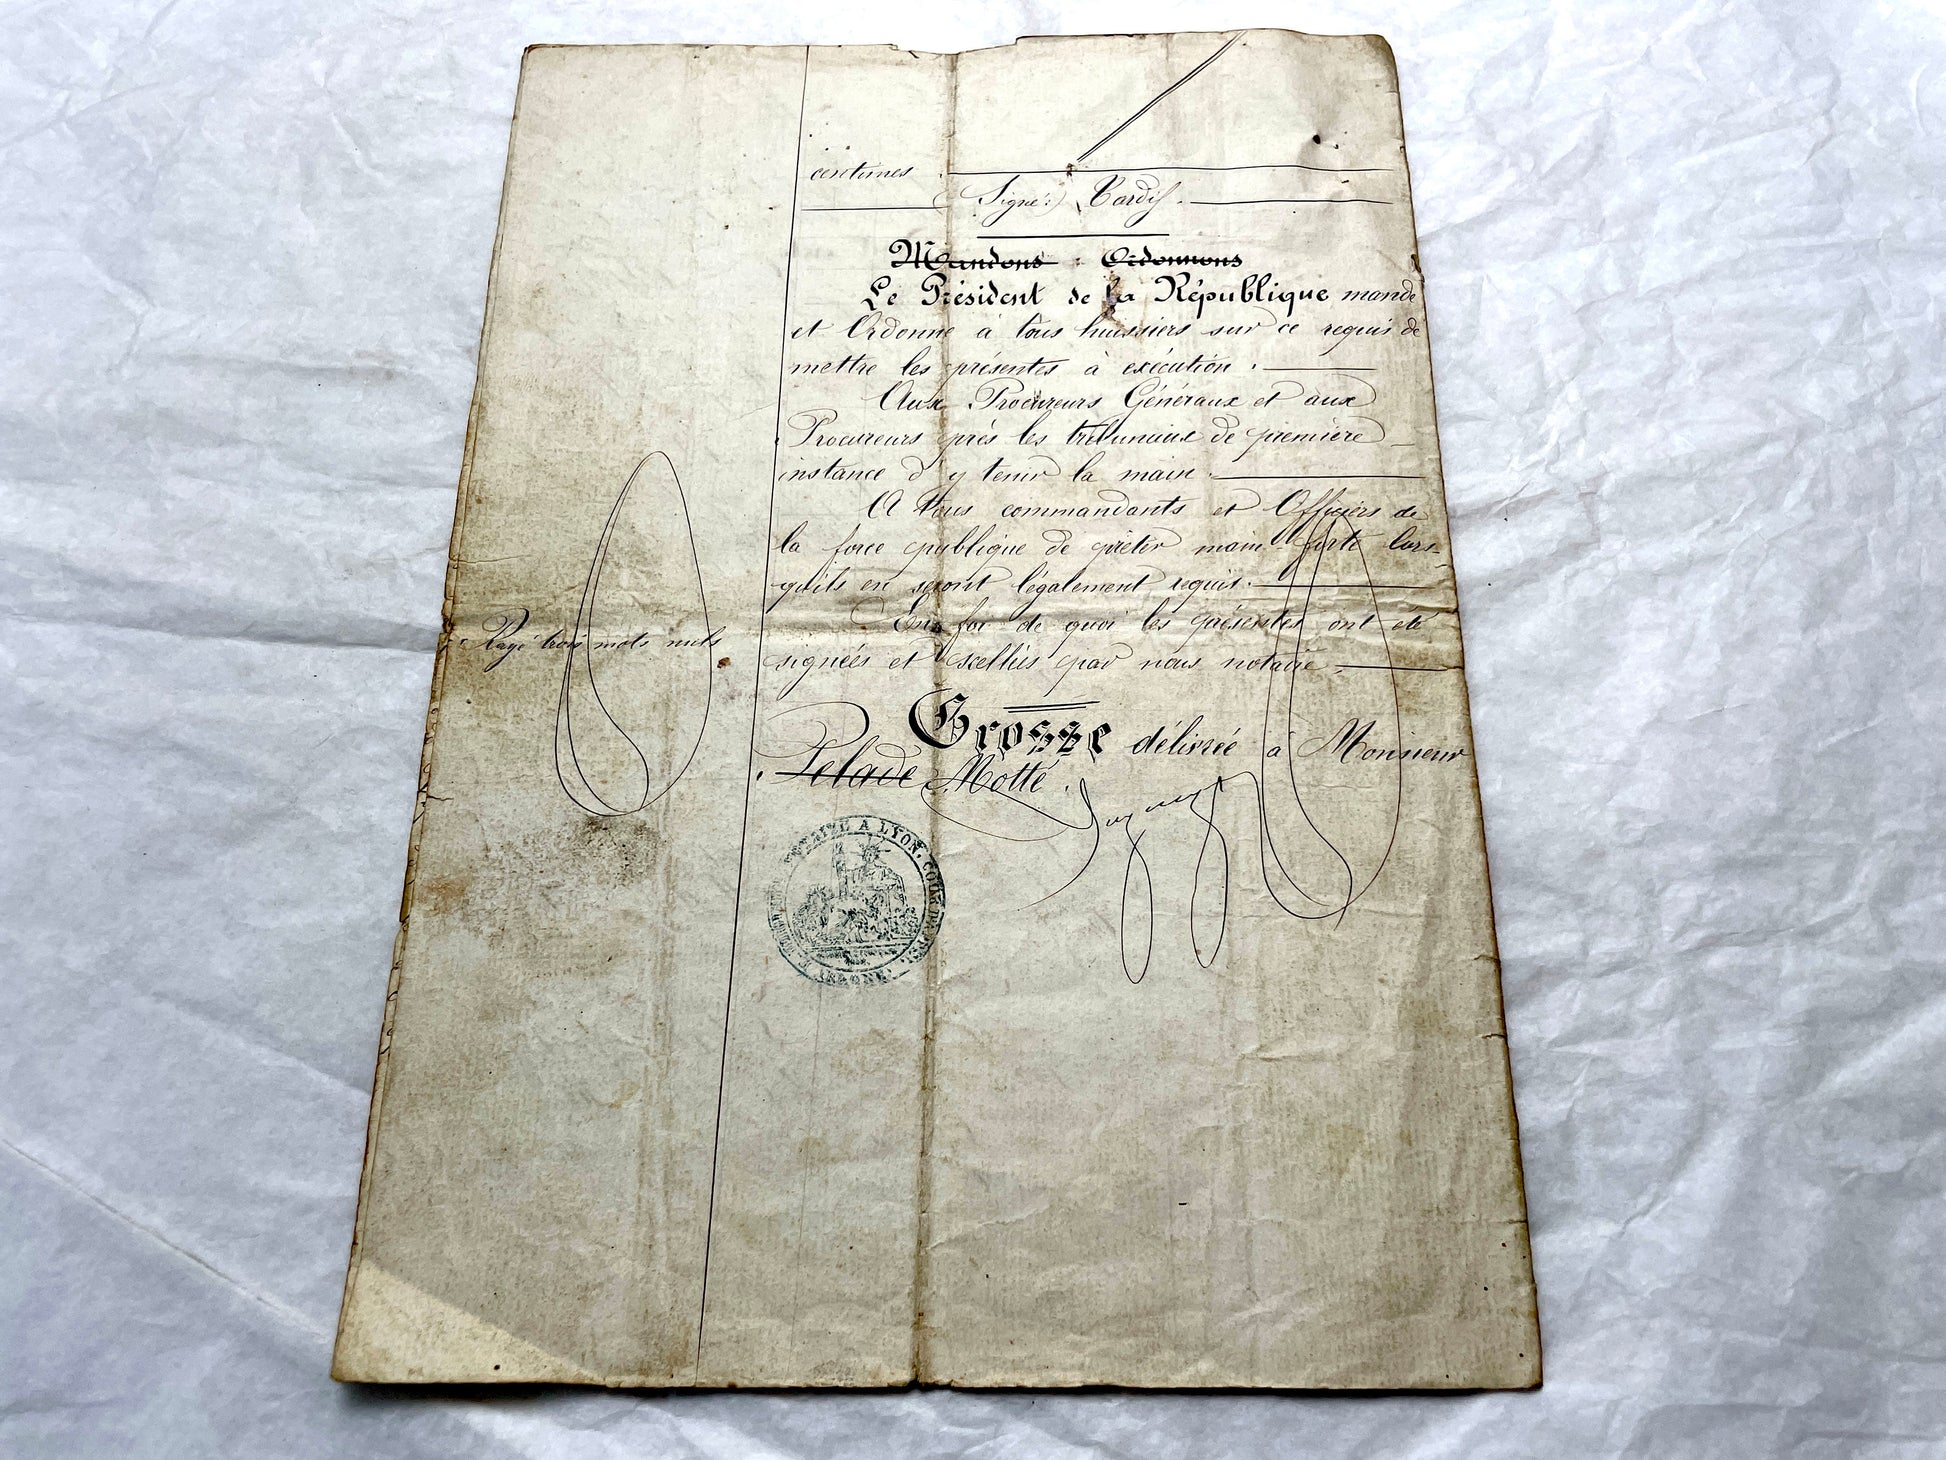 centimes
(Signé:) Tardif.
Mandons : Ordonnons
Le Président de la République mande
et Ordonne à tous huissiers sur ce requis de
mettre les présentes à exécution.
Aux Procureurs Généraux et aux
Procureurs près les tribunaux de première
instance d'y tenir la main.
A tous commandants et Officiers de
la force publique de prêter main-forte lors-
qu'ils en seront légalement requis.
En foi de quoi les présentes ont été
signées et scellées par nous notaire
Rayé trois mots nuls
Grosse délivrée à Monsieur
Pelade Motte.
A LYON. COUR
RHONE